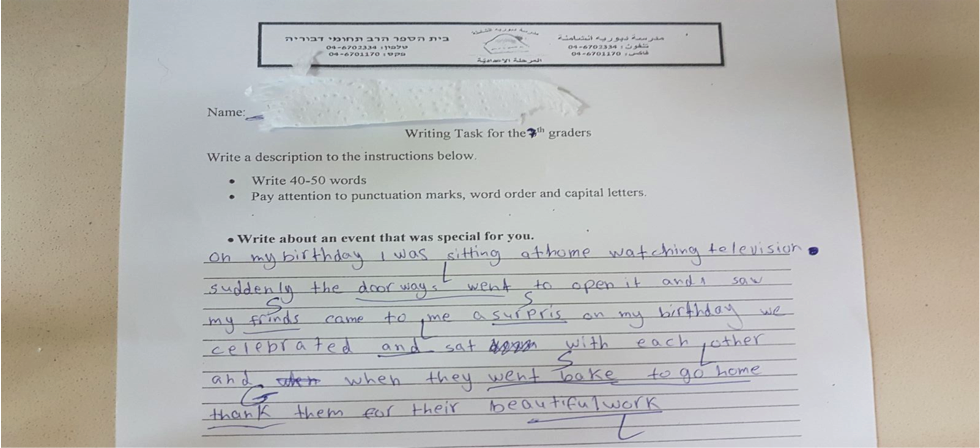 בית הספר הרב תחומי דבוריה
טלפון: 04-6703334
פקס: 04-6701170
مدرسة دبورية الشاملة
تلفون: 04-6703334
فاكس: 04-6701170
مدرسة دبورية الشاملة
المرحلة الاعدادية
Name:
Writing Task for the 7th graders
Write a description to the instructions below.
• Write 40-50 words
• Pay attention to punctuation marks, word order and capital letters.
• Write about an event that was special for you.
on my birthday I was sitting at home watching television.
suddenly the door ways went to open it and I saw
my frinds came to me a surpris on my birthday we
celebrated and sat with each other
and when they went bake to go home
thank them for their beautiful work
S
S
S
G